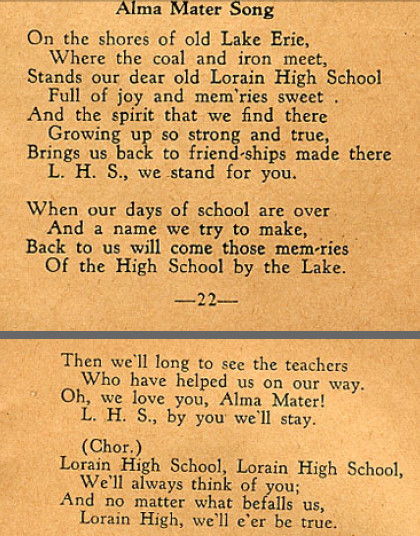 Alma Mater Song
On the shores of old Lake Erie,
Where the coal and iron meet,
Stands our dear old Lorain High School
Full of joy and mem'ries sweet .
And the spirit that we find there
Growing up so strong and true,
Brings us back to friend-ships made there
L. H. S., we stand for you.
When our days of school are over
And a name we try to make,
Back to us will come those mem-ries
Of the High School by the Lake.
—22—
Then we'll long to see the teachers
Who have helped us on our way.
Oh, we love you, Alma Mater!
L. H. S., by you we'll stay.
(Chor.)
Lorain High School, Lorain High School,
We'll always think of you;
And no matter what befalls us,
Lorain High, we'll e'er be true.